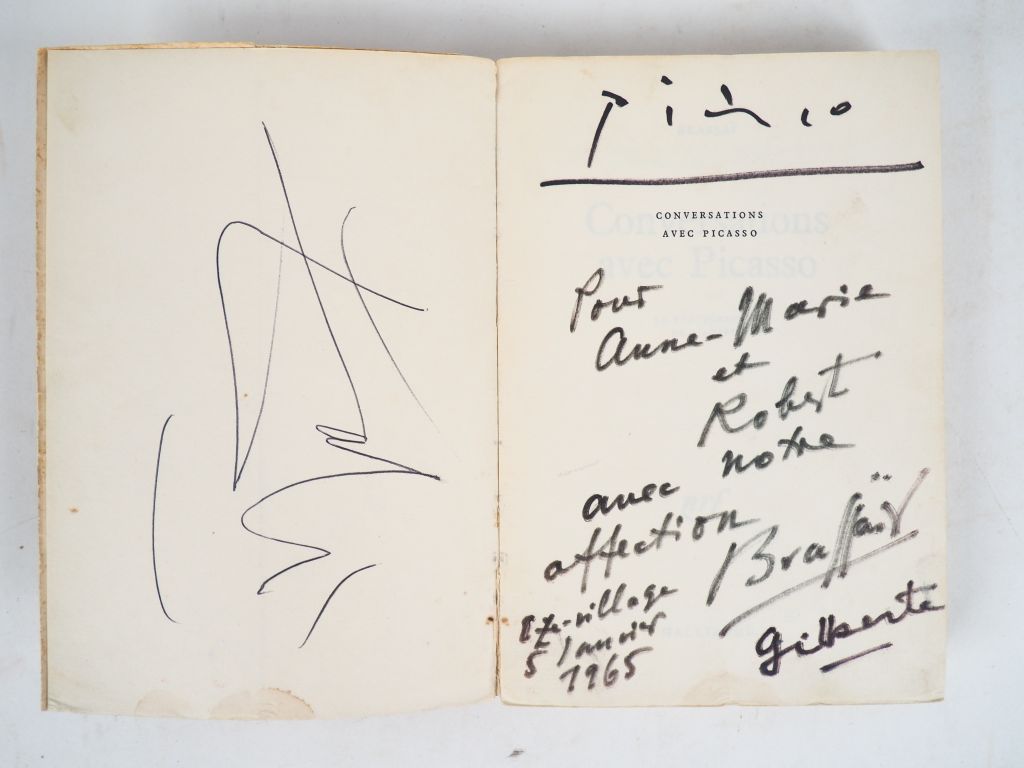 Picasso
CONVERSATIONS
AVEC PICASSO
Pour
Anne-Marie
et
Robert
avec notre
affection
Brassaï
Gilberte
Eze-village
5 Janvier
1965